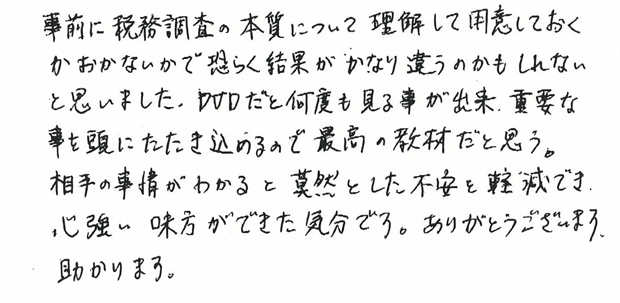 事前に税務調査の本質について理解して用意しておく
かおかないかで恐らく結果がかなり違うのかもしれない
と思いました。DVDだと何度も見る事が出来、重要な
事を頭にたたき込めるので最高の教材だと思う。
相手の事情がわかると莫然とした不安を軽減でき、
心強い味方ができた気分です。ありがとうございます、
助かります。